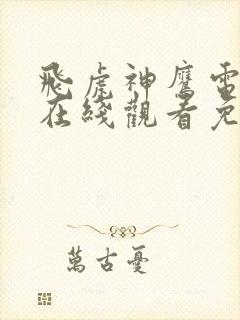 飛虎神鷹電
在綫觀看免
萬古憂